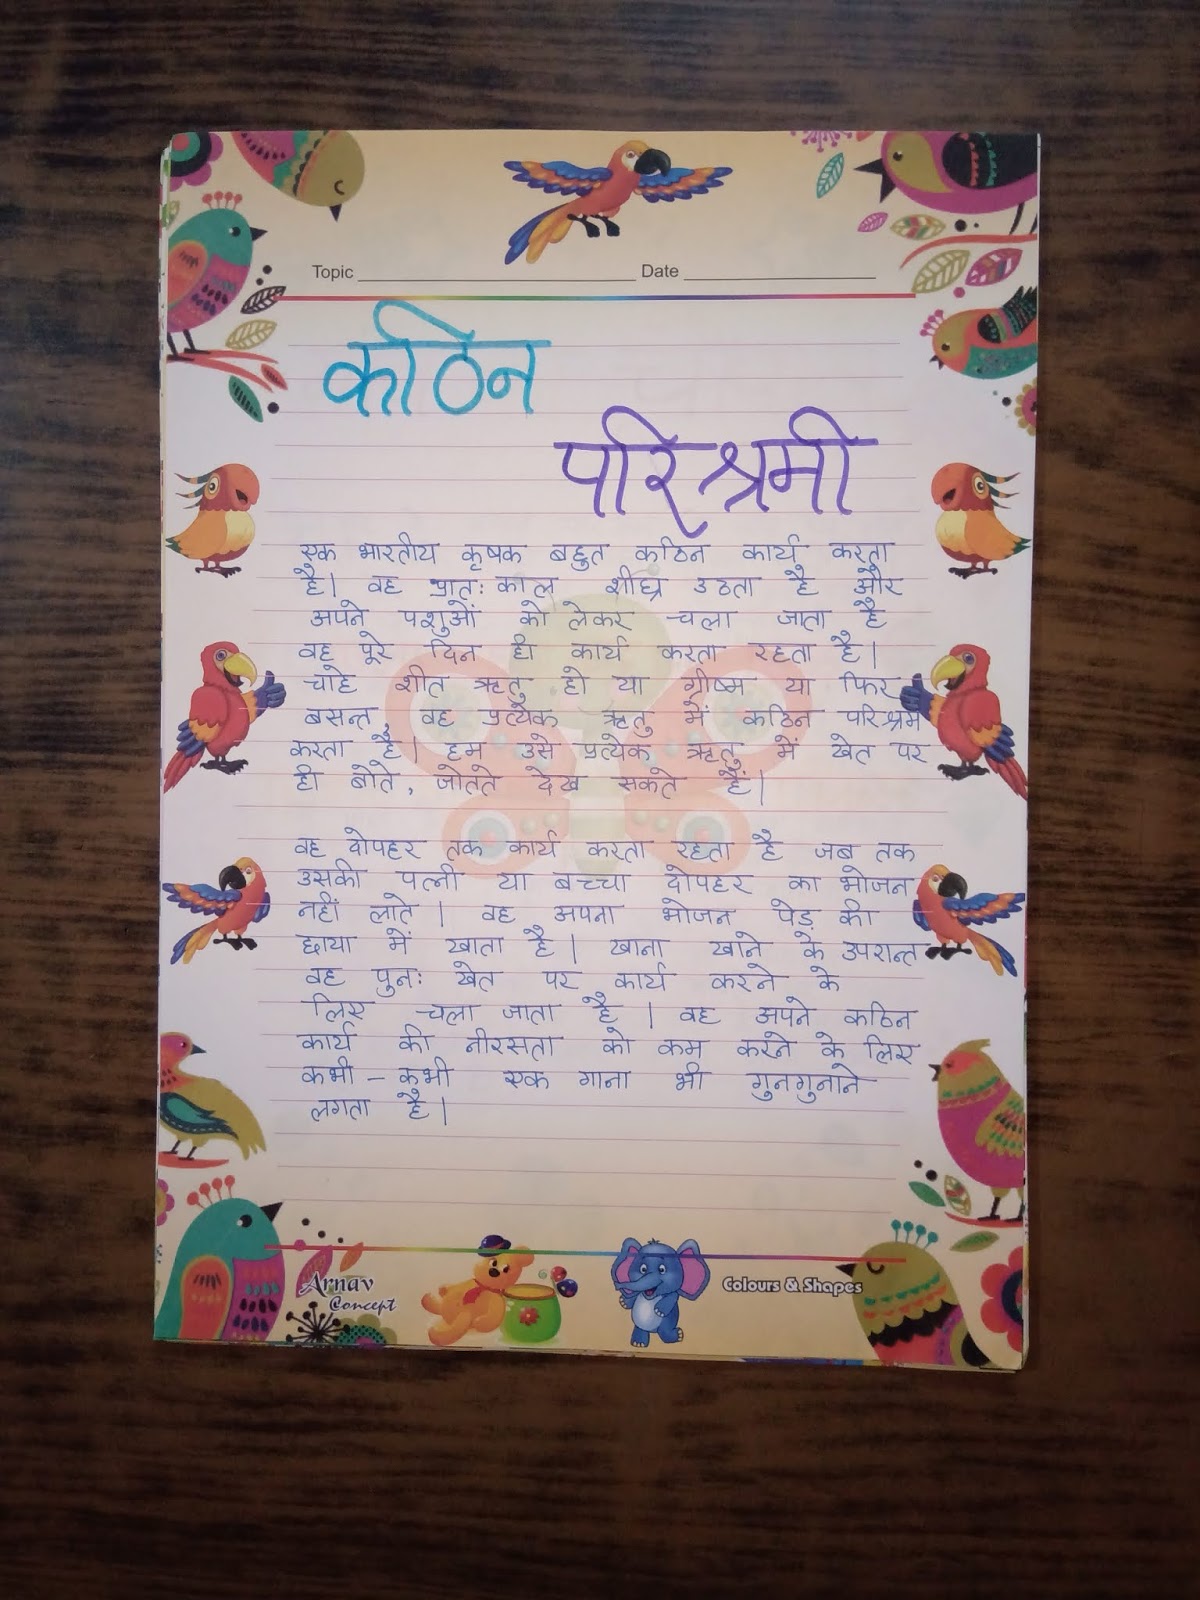 Topic Date
कठिन
परिश्रमी
एक भारतीय कृषक बहुत कठिन कार्य करता
है। वह प्रातः काल शीघ्र उठता है और
अपने पशुओं को लेकर चला जाता है
वह पूरे दिन ही कार्य करता रहता है।
चाहे शीत ऋतु हो या ग्रीष्म या फिर
बसन्त, वह प्रत्येक ऋतु में कठिन परिश्रम
करता है। हम उसे प्रत्येक ऋतु में खेत पर
ही बोते, जोतते देख सकते हैं।
वह दोपहर तक कार्य करता रहता है जब तक
उसकी पत्नी या बच्चा दोपहर का भोजन
नहीं लाते। वह अपना भोजन पेड़ की
छाया में खाता है। खाना खाने के उपरान्त
वह पुनः खेत पर कार्य करने के
लिए चला जाता है। वह अपने कठिन
कार्य की नीरसता को कम करने के लिए
कभी - कभी एक गाना भी गुनगुनाने
लगता है।
Arnav
Concept
Colours & Shapes